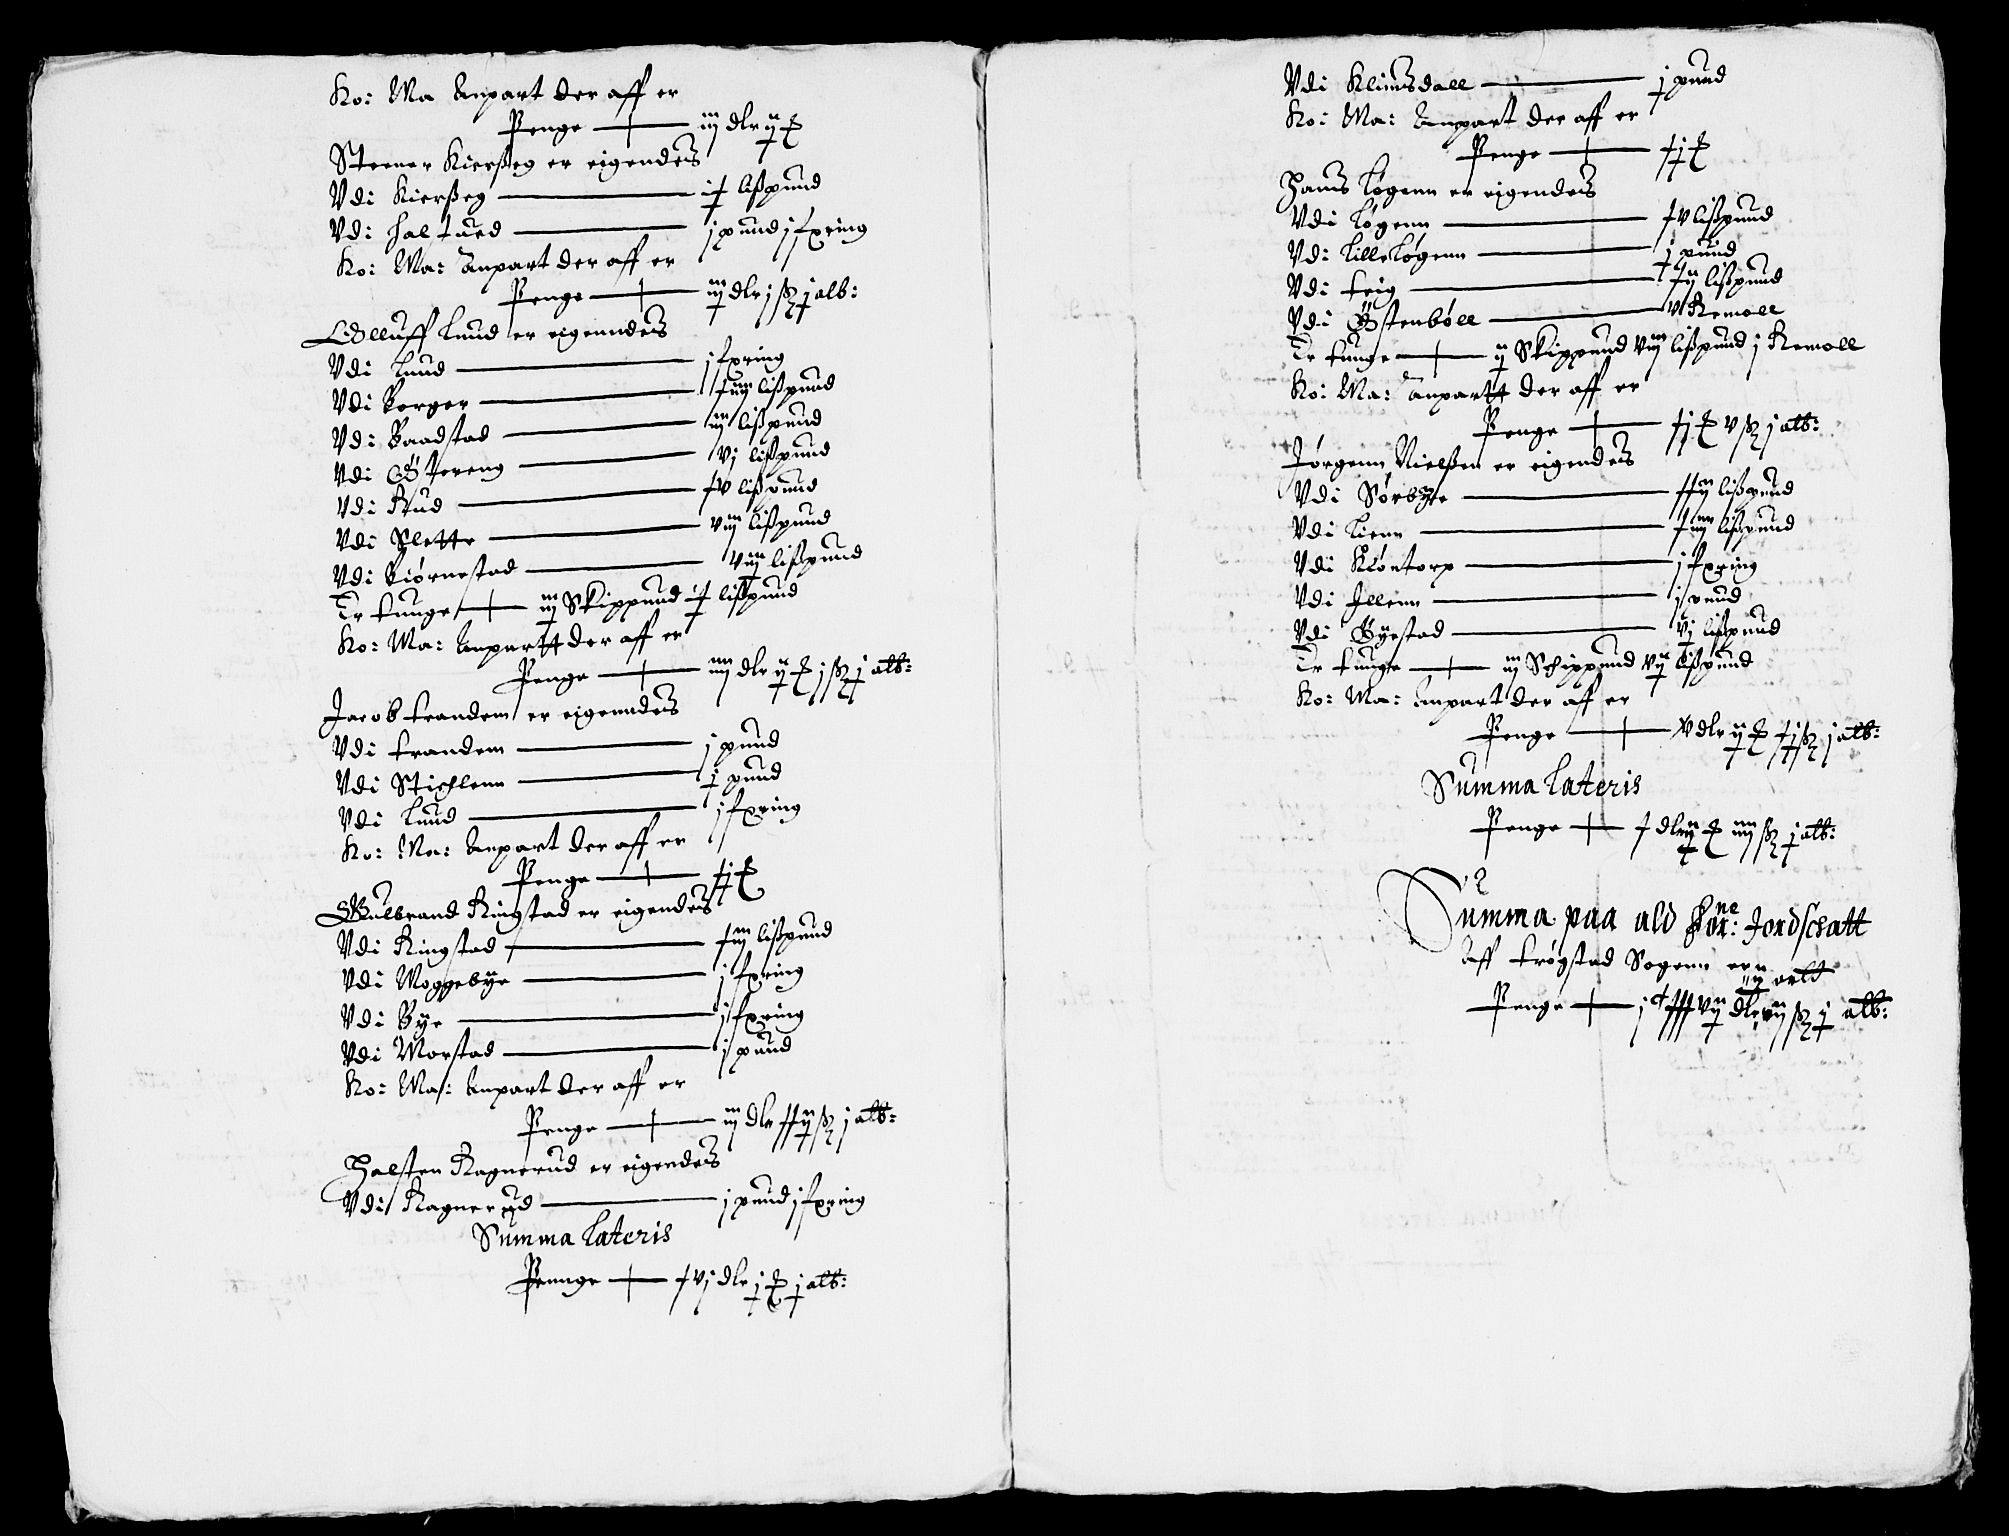 Ko: Ma Anpart der aff er
Penge — iij dlr ij
Steener Kierßeg er eigendes
Vdi Kierßeg — lißpund
Vdi — j pund j fxring
Ko: Ma: Anpart der aff er
Penge — iij dlr j ß j alb:
Olluff Lund er eigenndes
Vdi Lund — j fxring
Vdi Berger — xiiij lißpund
Vdi Baadstad — iiij lißpund
Vdi Østereng — vj lißpund
Vdi Rud — xv lißpund
Vdi Slette — viij lißpund
Vdi Biørnestad — viij lißpund
Er tunge — iij Skippund lißpund
Ko: Ma: Anpartt der aff er
Penge — iiij dlr ij j ß j alb:
Jacob Frandem er eigenndes
Vdi Frandem — j pund
Vdi Stichlenn — j pund
Vdi Lund — j fxring
Ko: Ma: Anpart der aff er
Penge — xj
Gulbrand Ringstad er eigendes
Vdi Ringstad — xiij lißpund
Vdi Moggebye — j fxring
Vdi Bye — j fxring
Vdi Morstad — j pund
Ko: Ma: Anpart der aff er
Penge — iij dlr xxij ß j alb:
Halsten Ragnerud er eigendes
Vdi Ragnerud — j pund j fxring
Summa Lateris
Pennge — xvj dlr j j alb:
Vdi Klimsdall — j pund
Ko: Ma: Anpart der aff er
Penge — xj
Hans Løgenn er eigendes
Vdi Løgenn — xv lißpund
Vdi Lille Løgenn — j pund
Vdi — xij lißpund
Vdi Østenbøll — v Remoll
Er tunge — ij Skippund viij lißpund j Remoll
Ko: Ma: Anpartt der aff er
Penge — xj v ß j alb:
Jørgenn Nielßen er eigendes
Vdi Sørbye — lißpund
Vdi Lienn — xiiij lißpund
Vdi Kløntorp — j fxring
Vdi Illenn — j pund
Vdi Byestad — vj lißpund
Er tunge — iij Schippund vij lißpund
Ko: Ma: Anpart der aff er
Penge — xv dlr ij xj ß j alb:
Summa Lateris
Penge — x dlr ij iiij ß j alb:
Summa paa ald for:ne Jordschatt
Aff Trøgstad Sogenn er
ij ortt
Penge — vij dlr vij ß j alb: